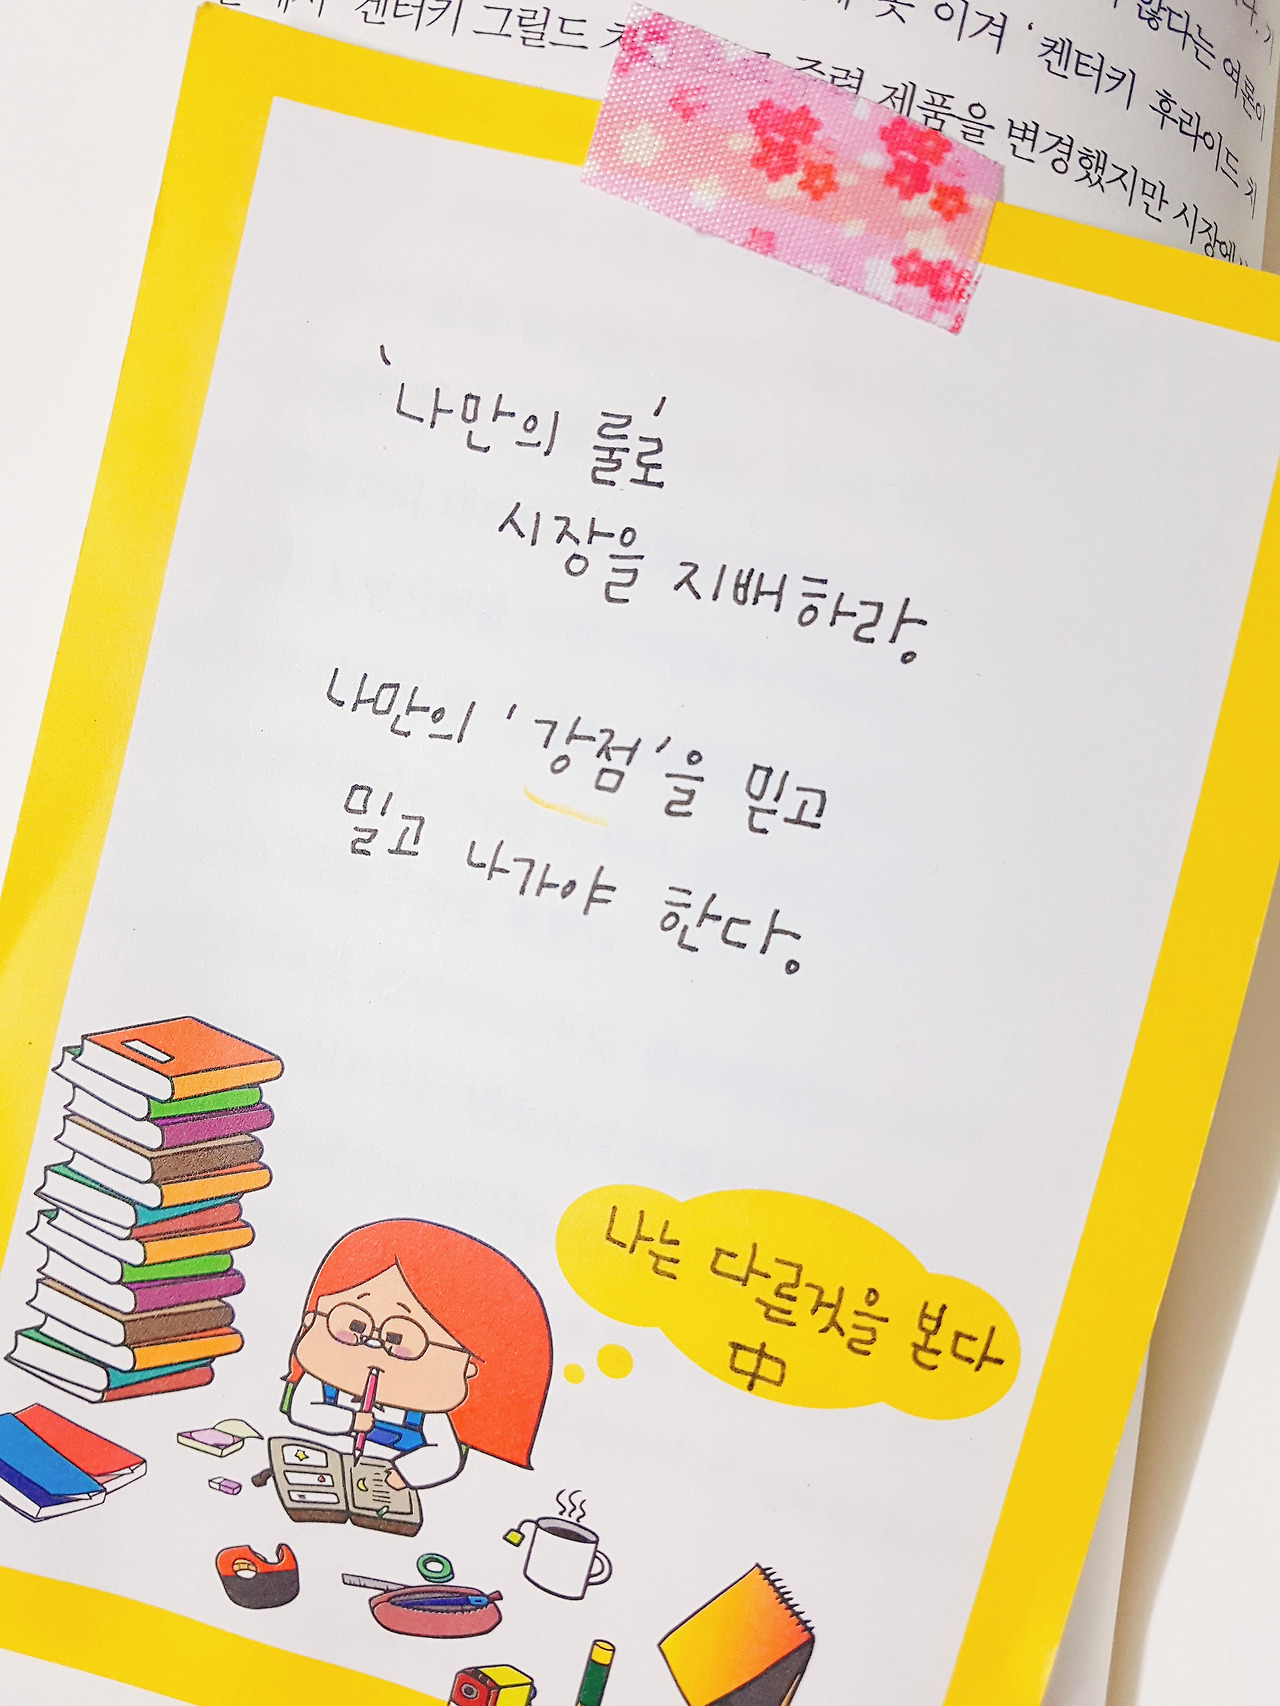 켄터키 그릴드
못 이겨 ‘켄터키 후라이드
않다는 여론이
주력 제품을 변경했지만 시장에서
‘나만의 룰로’
시장을 지배하라.
나만의 ‘강점’을 믿고
밀고 나가야 한다.
나는 다른것을 본다
中